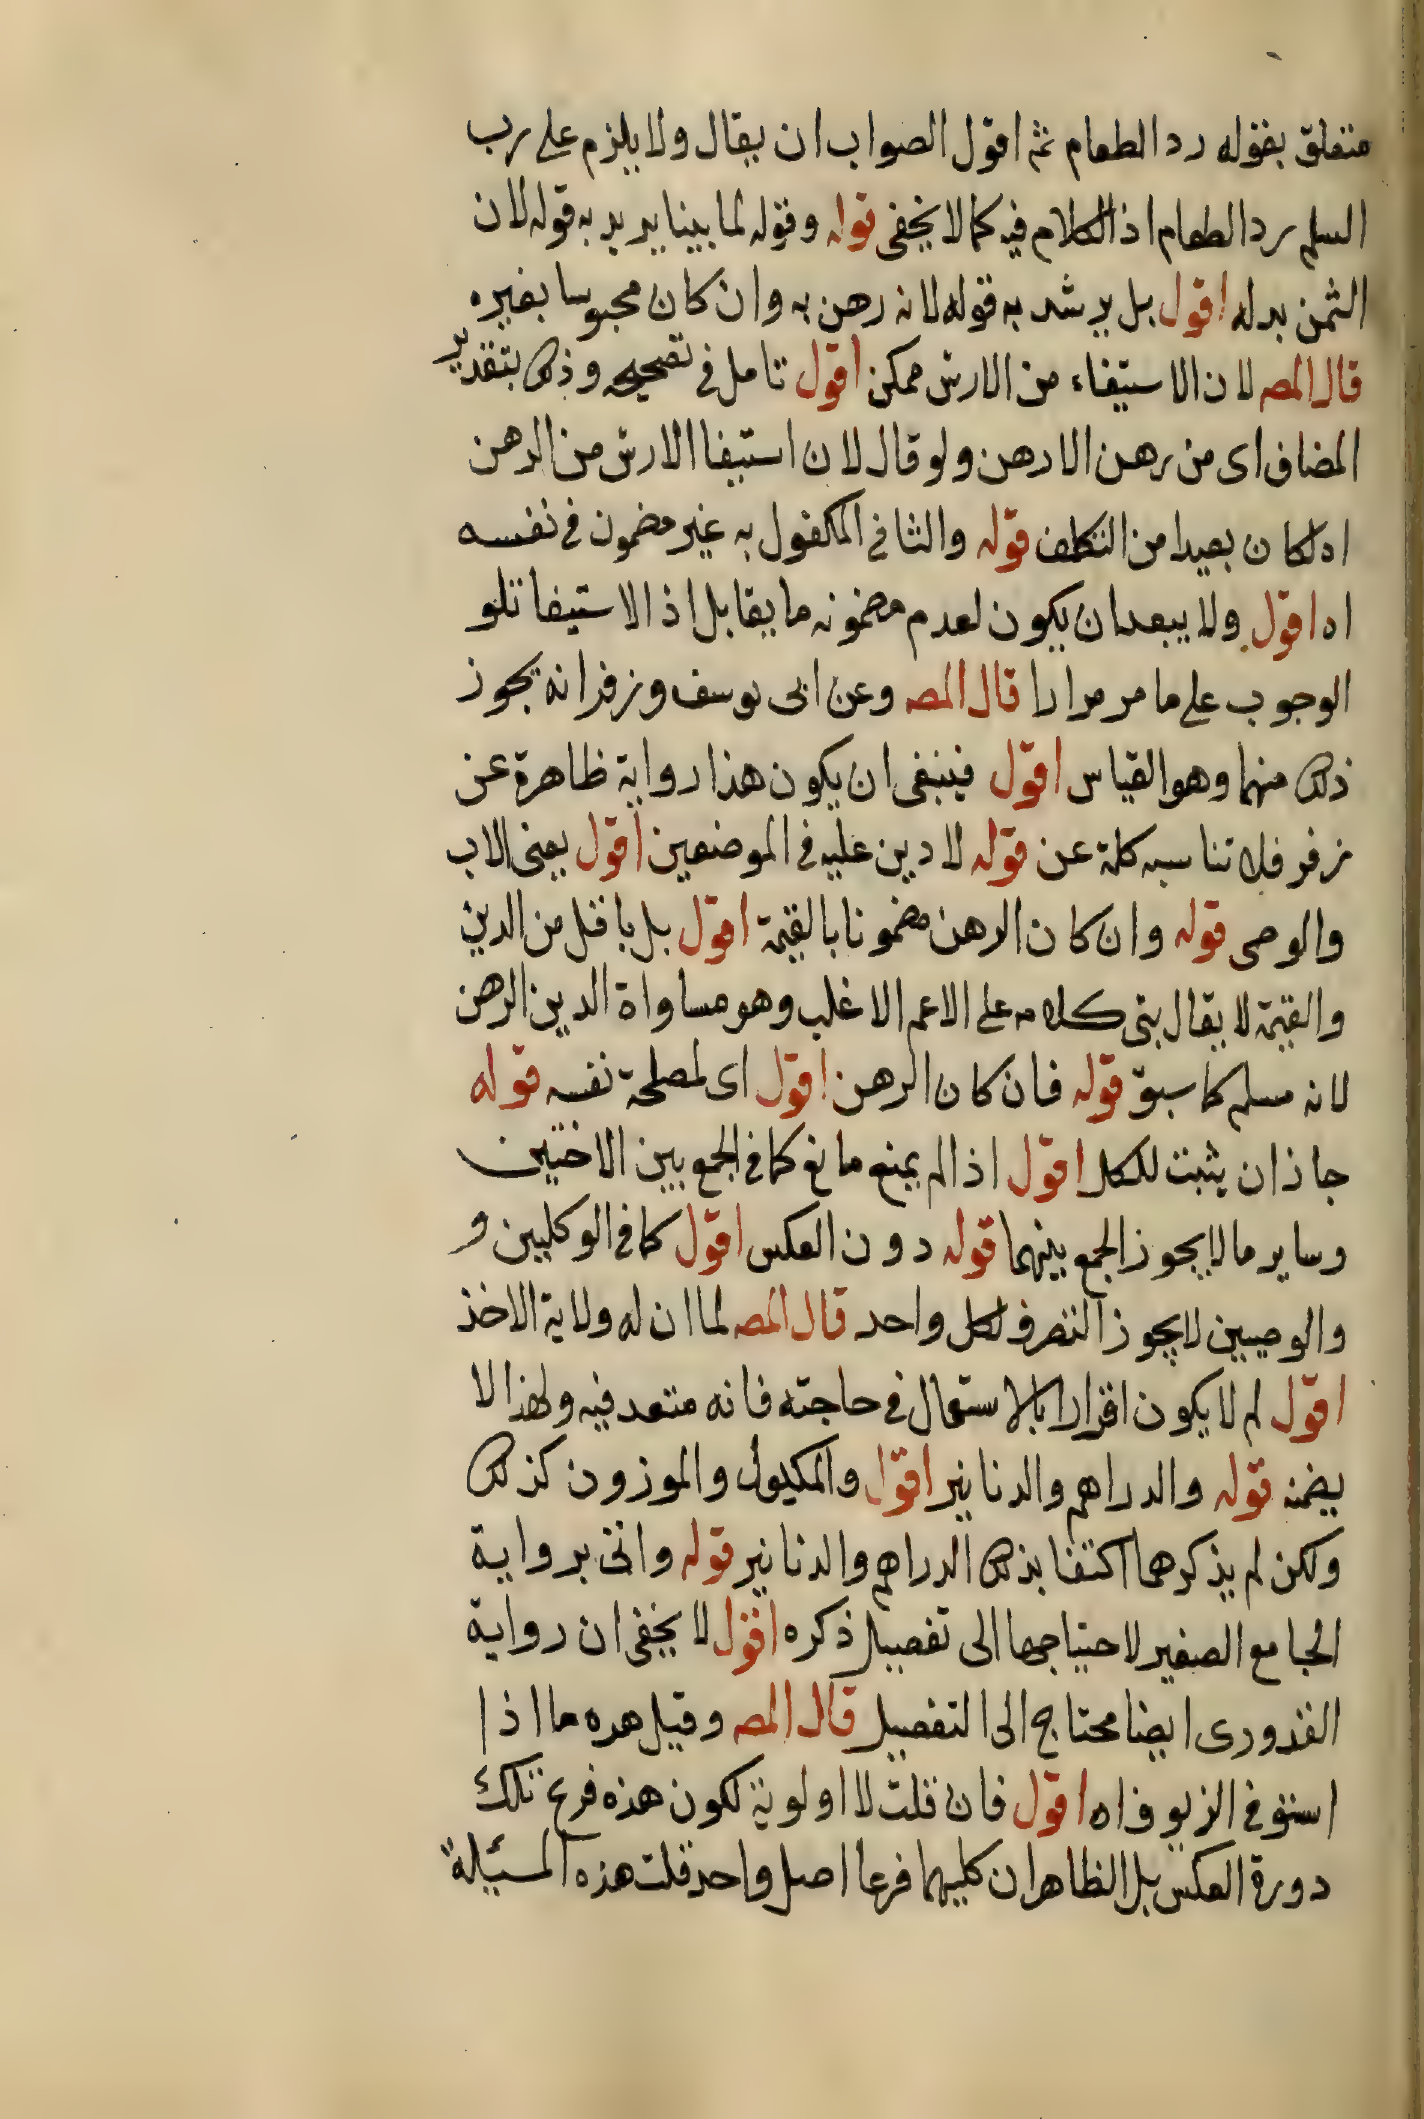 متعلق بقوله رد الطعام ثم اقول الصواب ان يقال ولا يلزم على رب
السلم رد الطعام اذ الكلام فيه كما لا يخفى قوله وقوله لما بينا يريد به قوله لان
الثمن بدله اقول بل يرشد به قوله لانه رهن به وان كان محبوسا بغيره
قال المصـ لان الاستيفاء من الارش ممكن اقول تامل في تصحيحه وذلك بتقدير
المضاف اى من رهن الا رهن ولو قال لان استيفا الارش من الرهن
اه لكان بعيدا من التكلف قوله والثانى المكفول به غير مضمون فى نفسه
اه اقول ولا يبعد ان يكون لعدم مضمونه ما يقابل اذ الاستيفا تلو
الوجوب على ما مر مرارا قال المصـ وعن ابى يوسف وزفر انه يجوز
ذلك منهما وهو القياس اقول فينبغى ان يكون هذا رواية ظاهرة عن
زفر فلا تناسبه كلمة عن قوله لا دين عليه فى الموضعين اقول يعنى الاب
والوصى قوله وان كان الرهن مضمونا بالقيمة اقول بل باقل من الدين
والقيمة لا يقال بنى كلامه على الاعم الاغلب وهو مساواة الدين الرهن
لانه مسلم كما سبق قوله فان كان الرهن اقول اى لمصلحة نفسه قوله
جاز ان يثبت للكل اقول اذا لم يمنع مانع كما فى الجمع بين الاختين
وساير ما لا يجوز الجمع بينهما قوله دون العكس اقول كما فى الوكلين و
والوصيين لا يجوز التصرف لكل واحد قال المصـ لما ان له ولاية الاخذ
اقول لم لا يكون اقرارا بالاستعمال فى حاجته فانه متعد فيه ولهذا لا
يضمنه قوله والدراهم والدنانير اقول والمكيول والموزون كذلك
ولكن لم يذكرهما اكتفا بذلك الدراهم والدنانير قوله واتى برواية
الجامع الصغير لاحتياجها الى تفصيل ذكره اقول لا يخفى ان رواية
القدورى ايضا محتاج الى التفصيل قال المصـ وقيل هده ما اذا
استوفى الزيوف اه اقول فان قلت لا اولوية لكون هذه فرع تلك
دورة العكس بل الظاهر ان كليهما فرعا اصل واحد قلت هذه المسئيلة